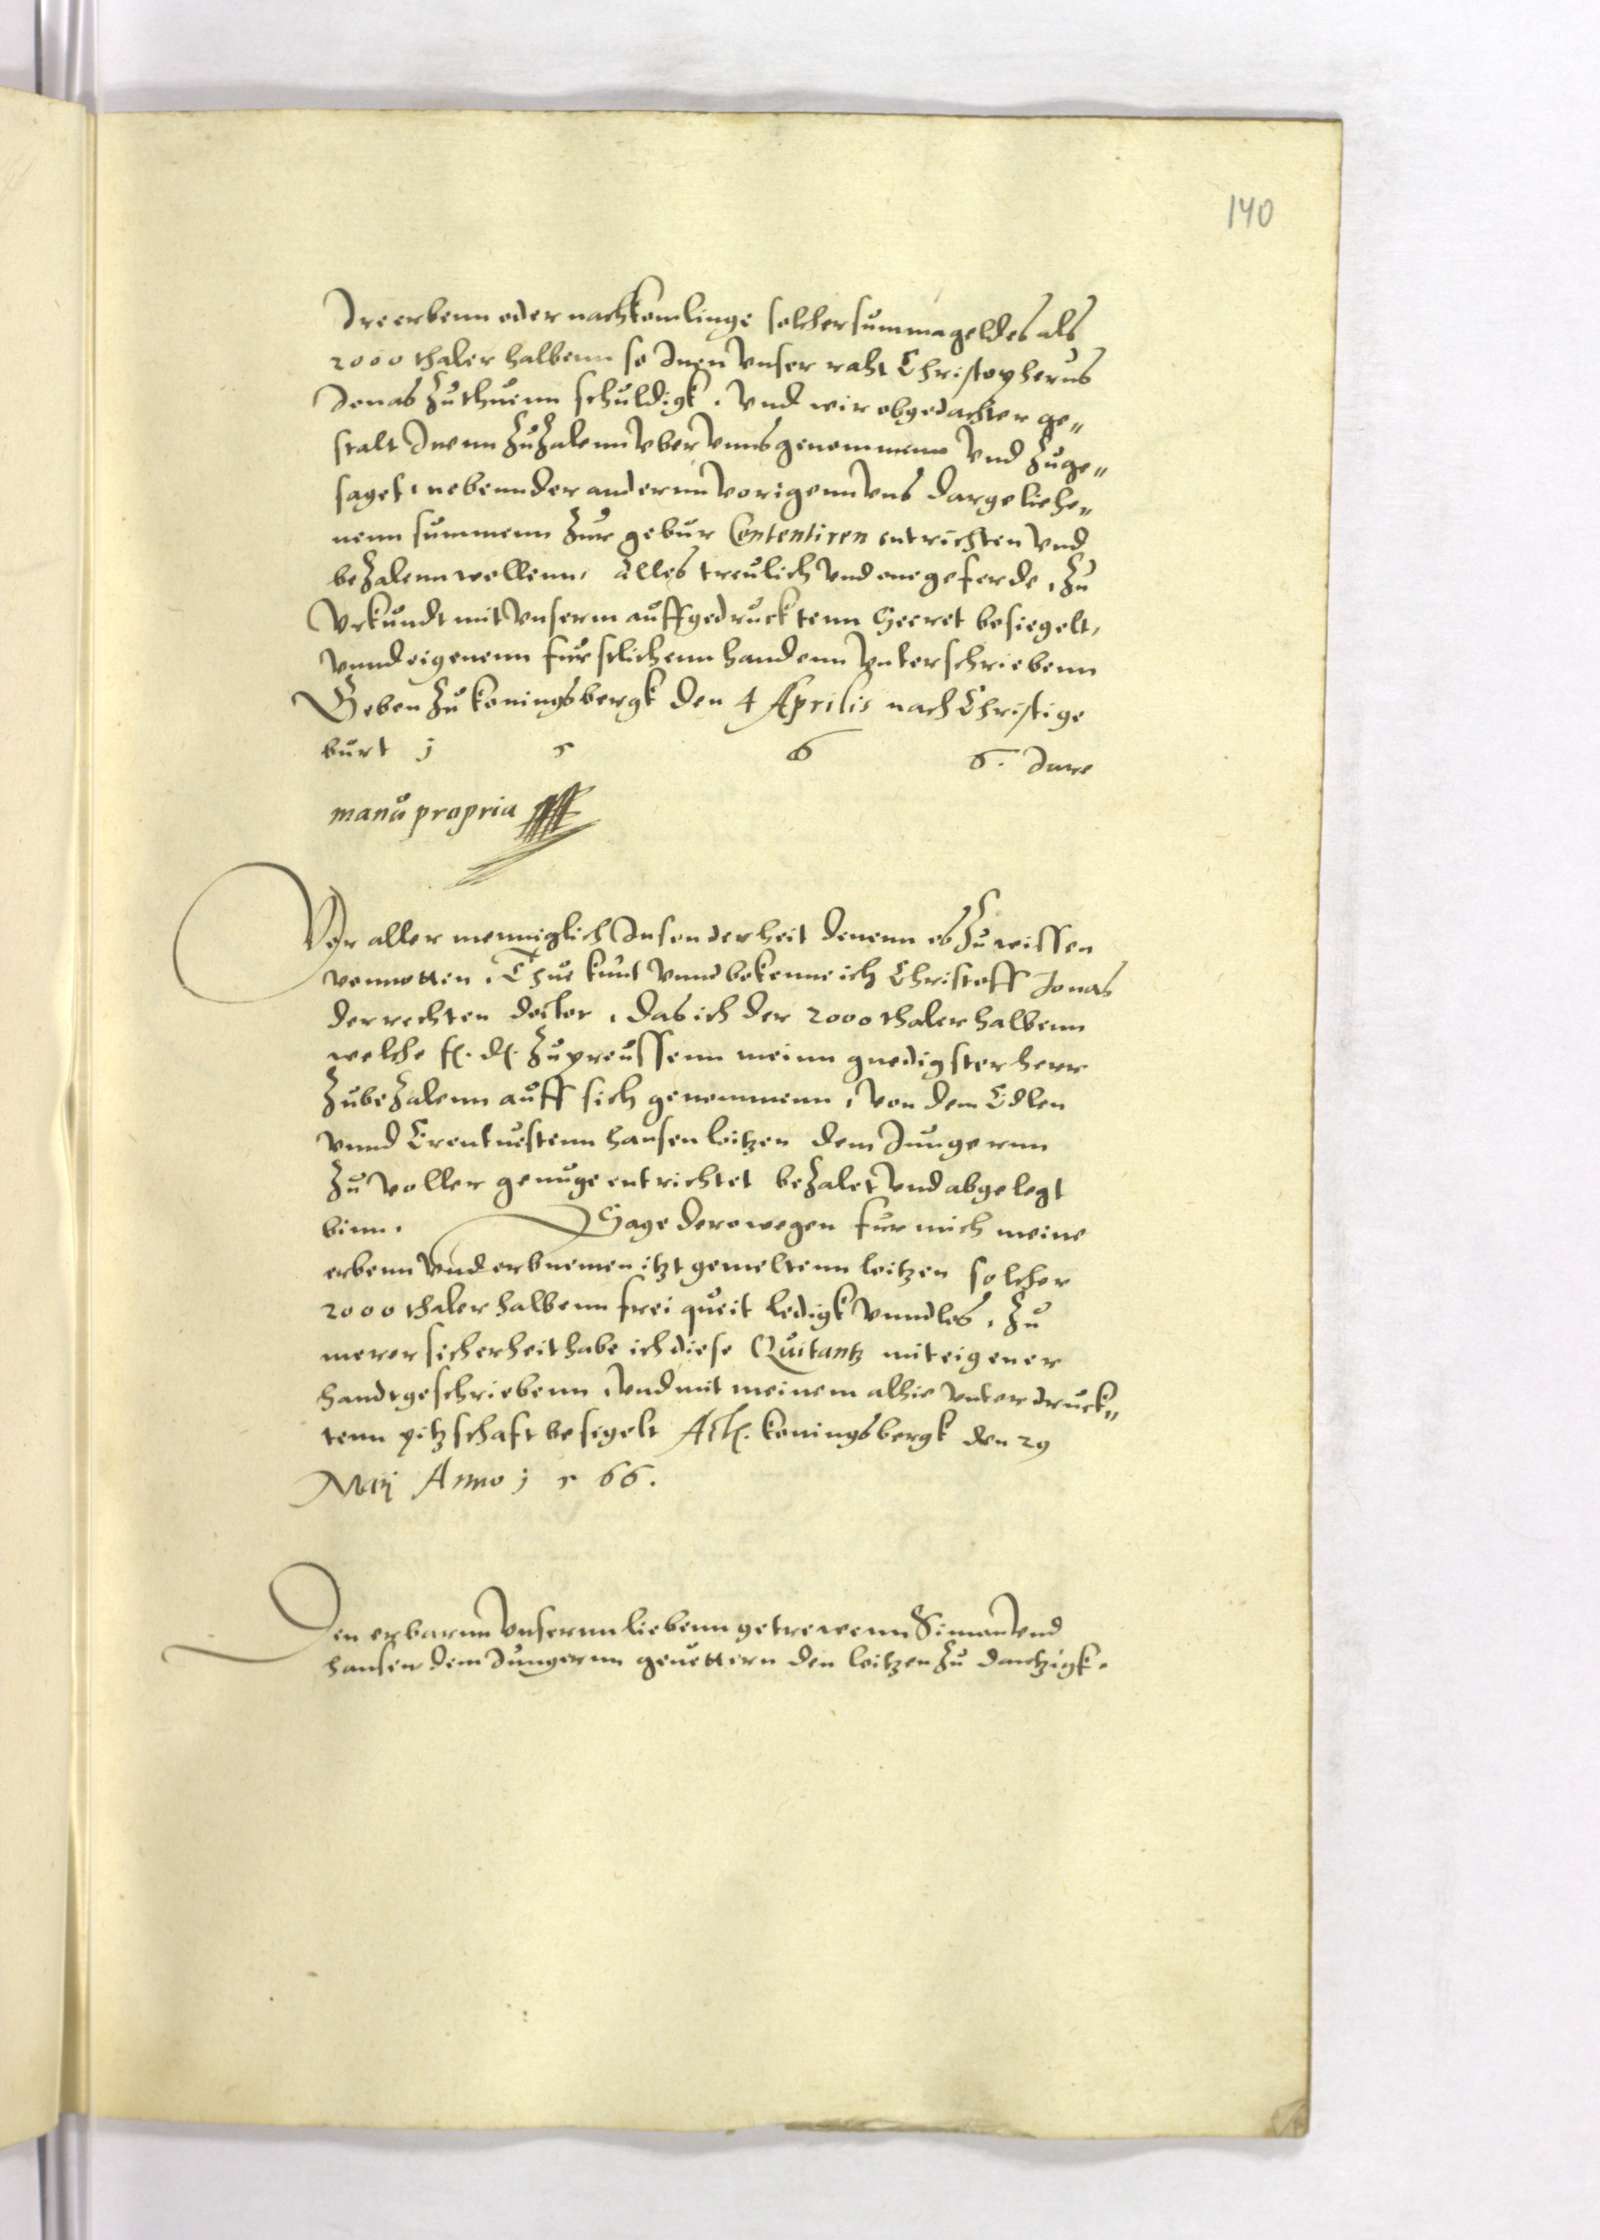 140
Ire erbenn oder nachkomlinge solcher summa geldes als
2000 thaler halbenn so Inen Vnser raht Christopherus
Jonas zuthuenn schuldigk. Vnd wir obgedachter ge„
stalt Inenn zuzalenn Vber Vnns genommenn Vnd zuge„
saget, nebenn der anderm Vorigenn Vns dargeliehe„
nenn summenn zur gebur Contentiren entrichten Vnd
bezalenn wollenn, Alles treulich Vnd one geferde, Zu
Vrkundt mit Vnserm auffgedrucktenn Secret besiegelt,
Vnnd eigenenn furstlichenn handenn Vnterschriebenn
Geben zu koningsbergk den 4 Aprilis nach Christi ge
burt j 5 6 6. Jare
manu propria
Vor aller menniglich Insonderheit denenn es zu wissen
vonnotten. Thue kunt Vnnd bekenne ich Christoff Jonas
der rechten doctor, das ich der 2000 thaler halbenn
welche f. d. zu preussenn meinn gnedigster herr
zubezalenn auff sich genommenn, Von dem Edlen
Vnnd Erentuestenn hansen loitzen dem Jungernn
zu Voller genuge entrichtet bezalet Vnd abgelegt
binn. Sage derowegen fur mich meine
erbenn Vnd erbnemen itzt gemeltenn loitzen solcher
2000 thaler halbenn frei queit ledigk Vnnd los, Zu
merer sicherheit habe ich diese Quitantz mit eigener
handt geschriebenn, Vnd mit meinem alhie Vnterdruck„
tenn pitzschaft besigelt Act. koningsbergk den 29
Maij Anno j 5 66.
Den erbarnn Vnsernn liebenn getrewenn Simon Vnd
hansen dem Jungernn geuettern den loitzen zu dantzigk.